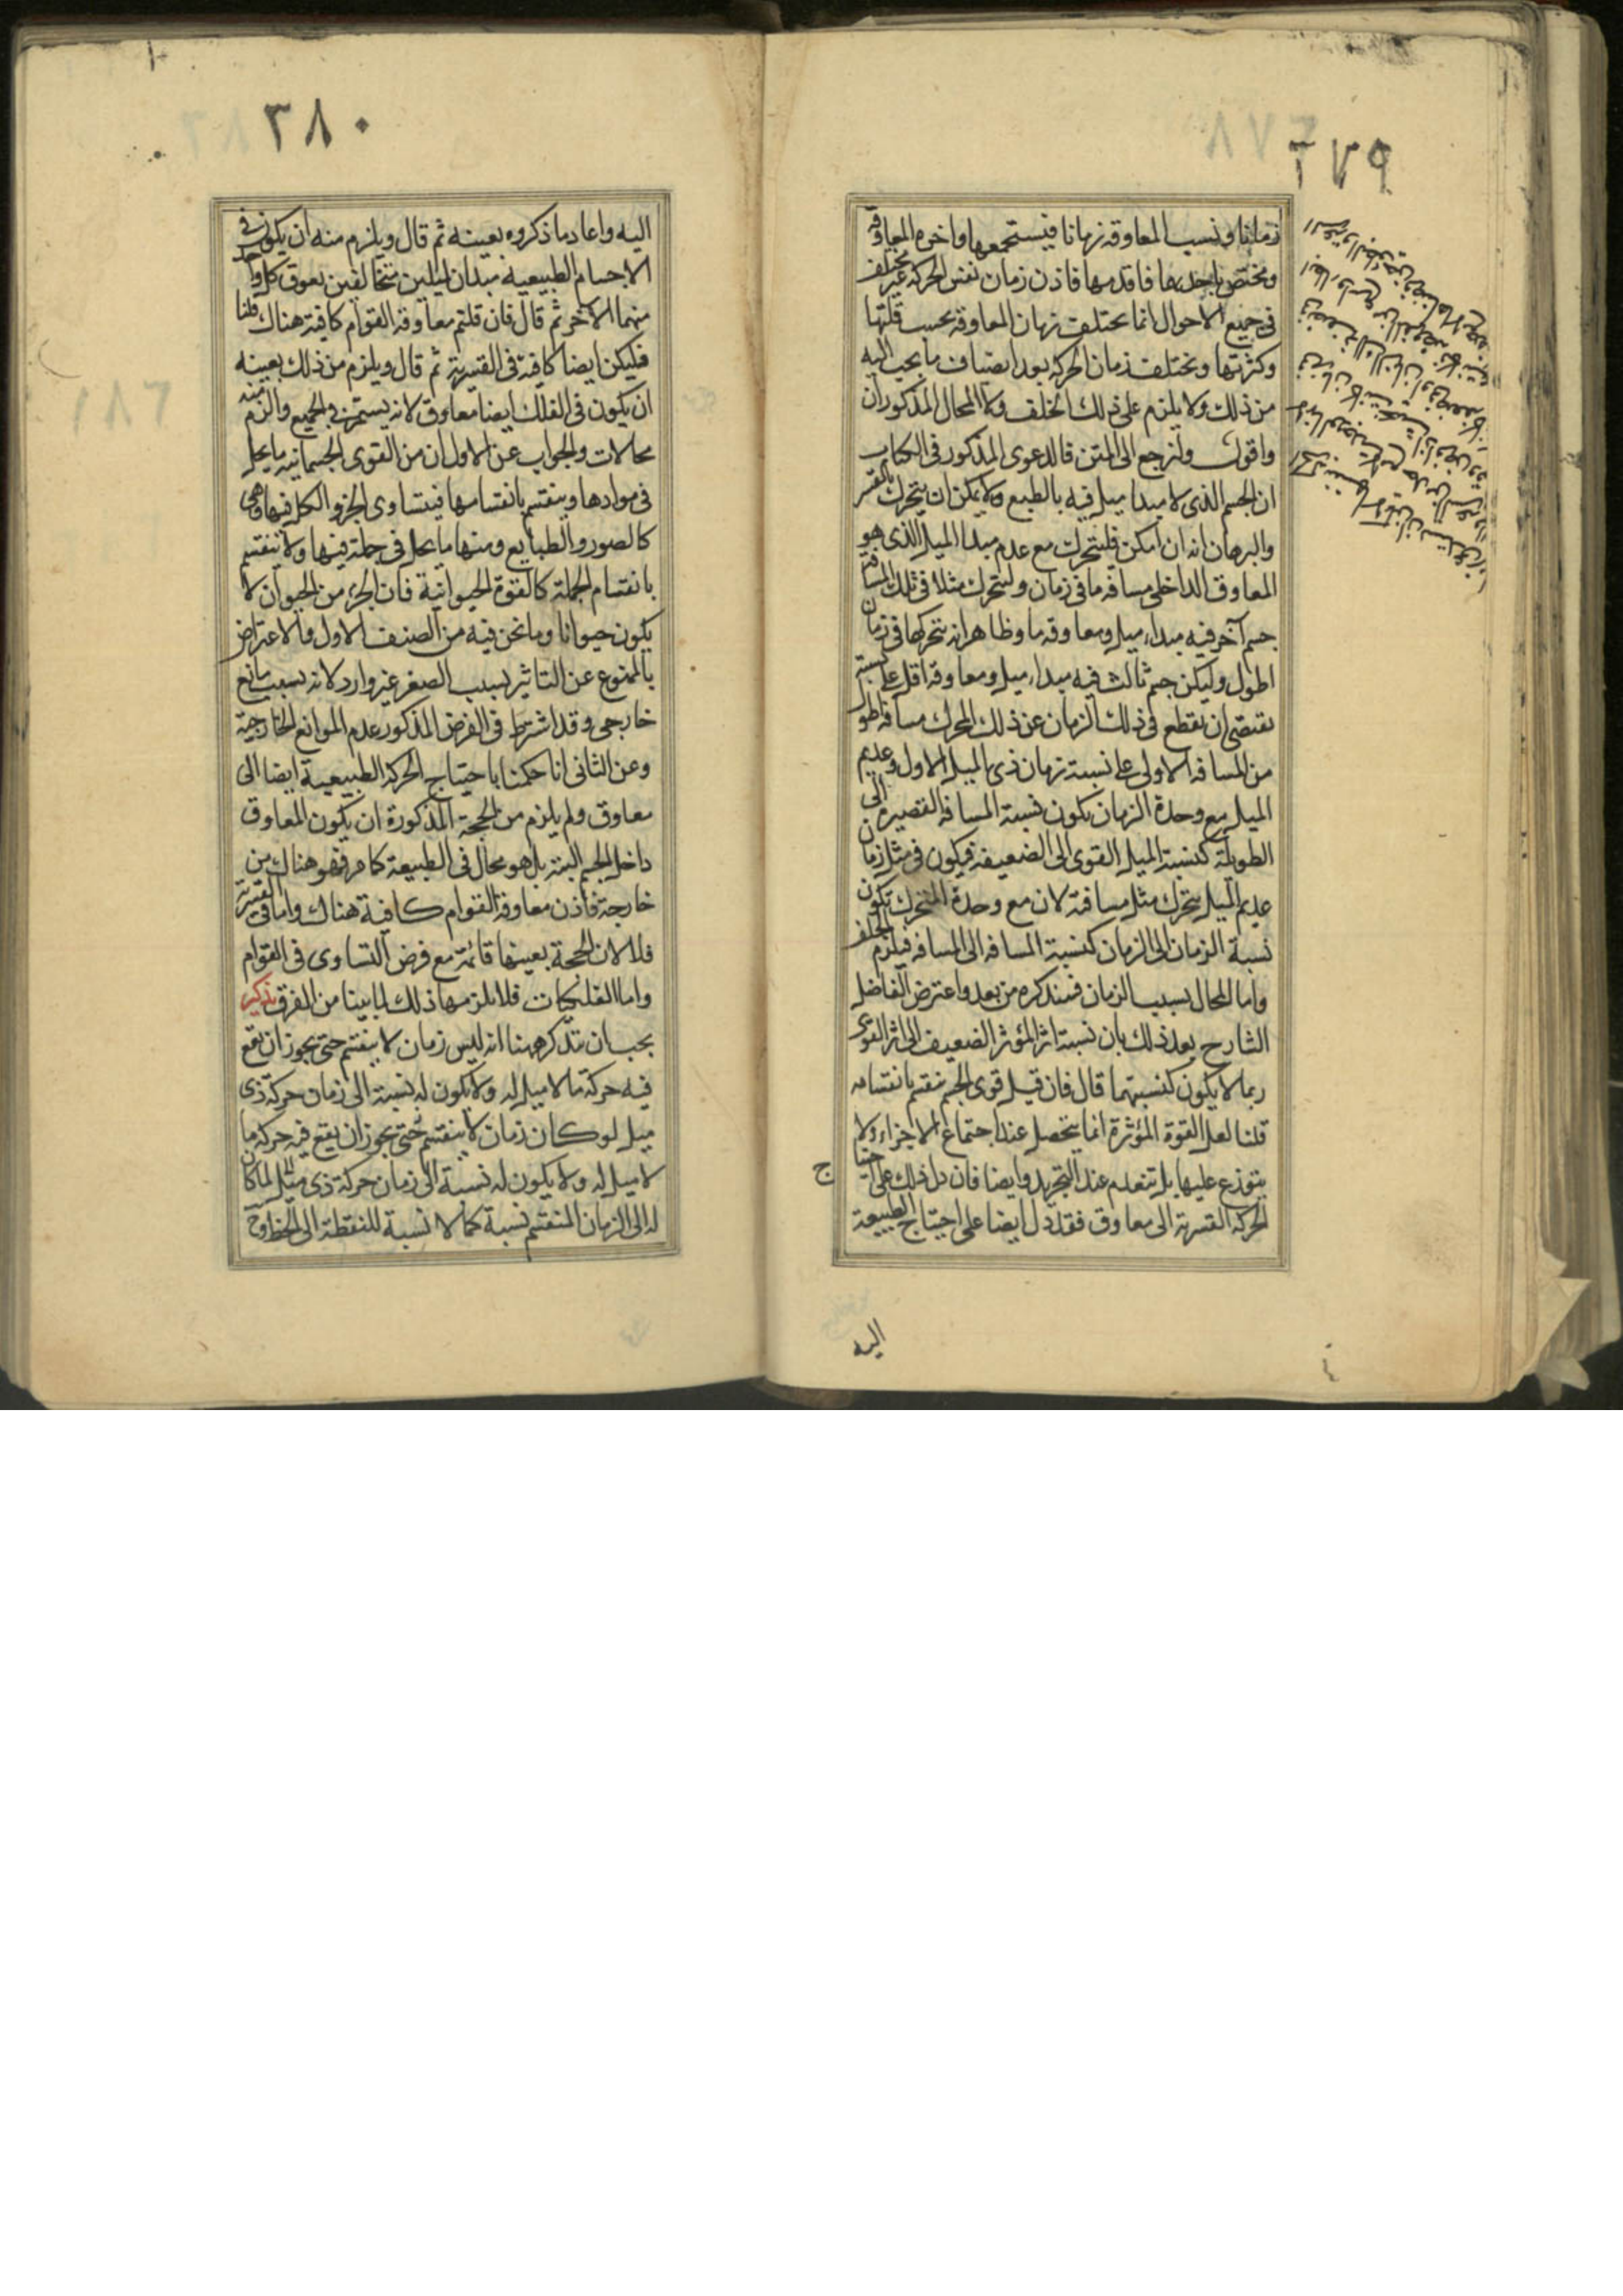 ٣٧٩
زمانا وبسبب المعاوقة زمانا فيستجمعها واخره المعاوقة
ويختص باحديهما فاقدمها فاذن زمان نفس الحركة غير مختلف
فى جميع الاحوال انما يختلف زمان المعاوقة بحسب قلتها
وكثرتها ويختلف زمان الحركة بعد انضياف ما يجب اليه
من ذلك ولا يلزم على ذلك الخلف ولا المحال المذكوران
واقول ولنرجع الى المتن فالدعوى المذكور فى الكتاب
ان الجسم الذى لا مبدا ميل فيه بالطبع ولا يمكن ان يتحرك بالقسر
والبرهان انه ان امكن فليتحرك مع عدم مبدا الميل الذى هو
المعاوق الداخلى مسافة ما فى زمان وليتحرك مثلا فى تلك المسافة
جسم آخر فيه مبداء ميل ومعاوقة ما وظاهر انه يتحركها فى زمان
اطول وليكن جسم ثالث فيه مبداء ميل ومعاوقة اقل على نسبة
يقتضى ان يقطع فى ذلك الزمان عن ذلك المحرك مسافة اطول
من المسافة الاولى على نسبة زمان ذى الميل الاول وعديم
الميل مع وحدة الزمان يكون نسبة المسافة القصيرة الى
الطويلة كنسبة الميل القوى الى الضعيفة فيكون فى مثل زمان
عديم الميل يتحرك مثل مسافته لان مع وحدة المتحرك تكون
نسبة الزمان الى الزمان كنسبة المسافة الى المسافة فيلزم الخلف
واما المحال بسبب الزمان فسنذكره من بعد واعترض الفاضل
الشارح بعد ذلك بان نسبة اثر المؤثر الضعيف الى اثر القوى
ربما لا يكون كنسبتهما قال فان قيل قوى الجسم ينقسم بانقسامه
قلنا لعل القوة المؤثرة انما يتحصل عند اجتماع الاجزاء ولا
يتوزع عليها بل تنعدم عند التجريد وايضا فان دل ذلك على احتياج
الحركة القسرية الى معاوق فقد دل ايضا على احتياج الطبيعة
اليه
٣٨٠
اليه واعاد ما ذكروه بعينه ثم قال ويلزم منه ان يكون فى
الاجسام الطبيعية مبدان لميلين متخالفين يعوق كل واحد
منهما الآخر ثم قال فان قلتم معاوقة القوام كافية هناك قلنا
فليكن ايضا كافية فى القسرية ثم قال ويلزم من ذلك بعينه
ان يكون فى الفلك ايضا معاوق لانه يستمر فى الجميع والزم منه
محالات والجواب عن الاول ان من القوى الجسمانية ما يحل
فى موادها وينقسم بانقسامها فيتساوى الجزو والكل فيها وهى
كالصور والطبايع ومنها ما يحل فى جملة فيها ولا ينقسم
بانقسام الجملة كالقوة الحيوانية فان الجزء من الحيوان لا
يكون حيوانا وما نحن فيه من الصنف الاول والاعتراض
بالممنوع عن التاثير بسبب الصغر غير وارد لانه بسبب مانع
خارجى وقد اشترط فى الفرض المذكور عدم الموانع الخارجية
وعن الثانى انا حكمنا باحتياج الحركة الطبيعية ايضا الى
معاوق ولم يلزم من الحجة المذكورة ان يكون المعاوق
داخل الجسم البتة بل هو محال فى الطبيعة كما مر فهو هناك من
خارجة فاذن معاوقة القوام كافية هناك واما فى القسرية
فلا لان الحجة بعينها قائمة مع فرض التساوى فى القوام
واما الفلكيات فلا يلزمها ذلك لما بينا من الفرق تذكير
يجب ان تتذكر ههنا انه ليس زمان لا ينقسم حتى يجوز ان يقع
فيه حركة ما لا ميل له ولا يكون له نسبة الى زمان حركة ذى
ميل لو كان زمان لا ينقسم حتى يجوز ان يقع فيه حركة ما
لا ميل له ولا يكون له نسبة الى زمان حركة ذى ميل لما كان
له الى الزمان المنقسم نسبة كما لا نسبة للنقطة الى الخط وح